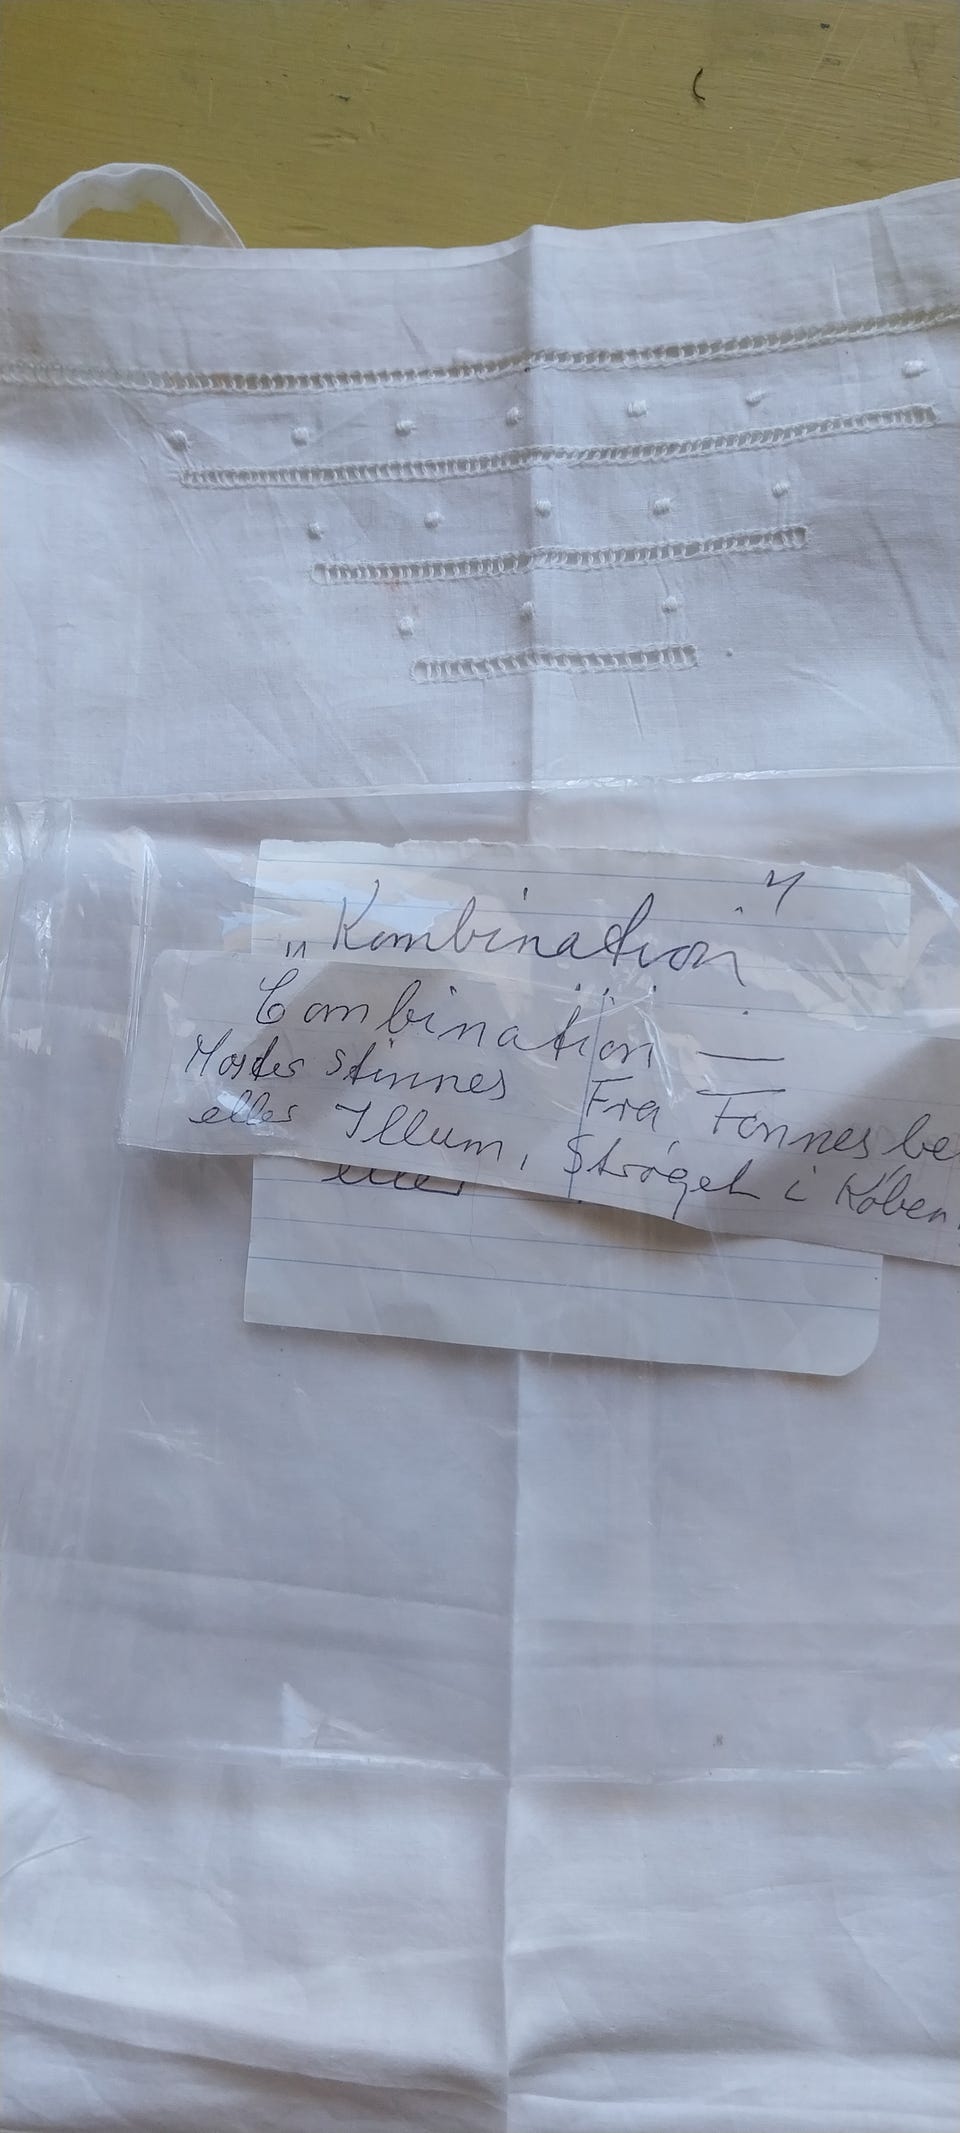 „Kombination"
Combination —
Moster Stinnes Fra Fonnesbe
eller Illum, Strøget i Køben
eller